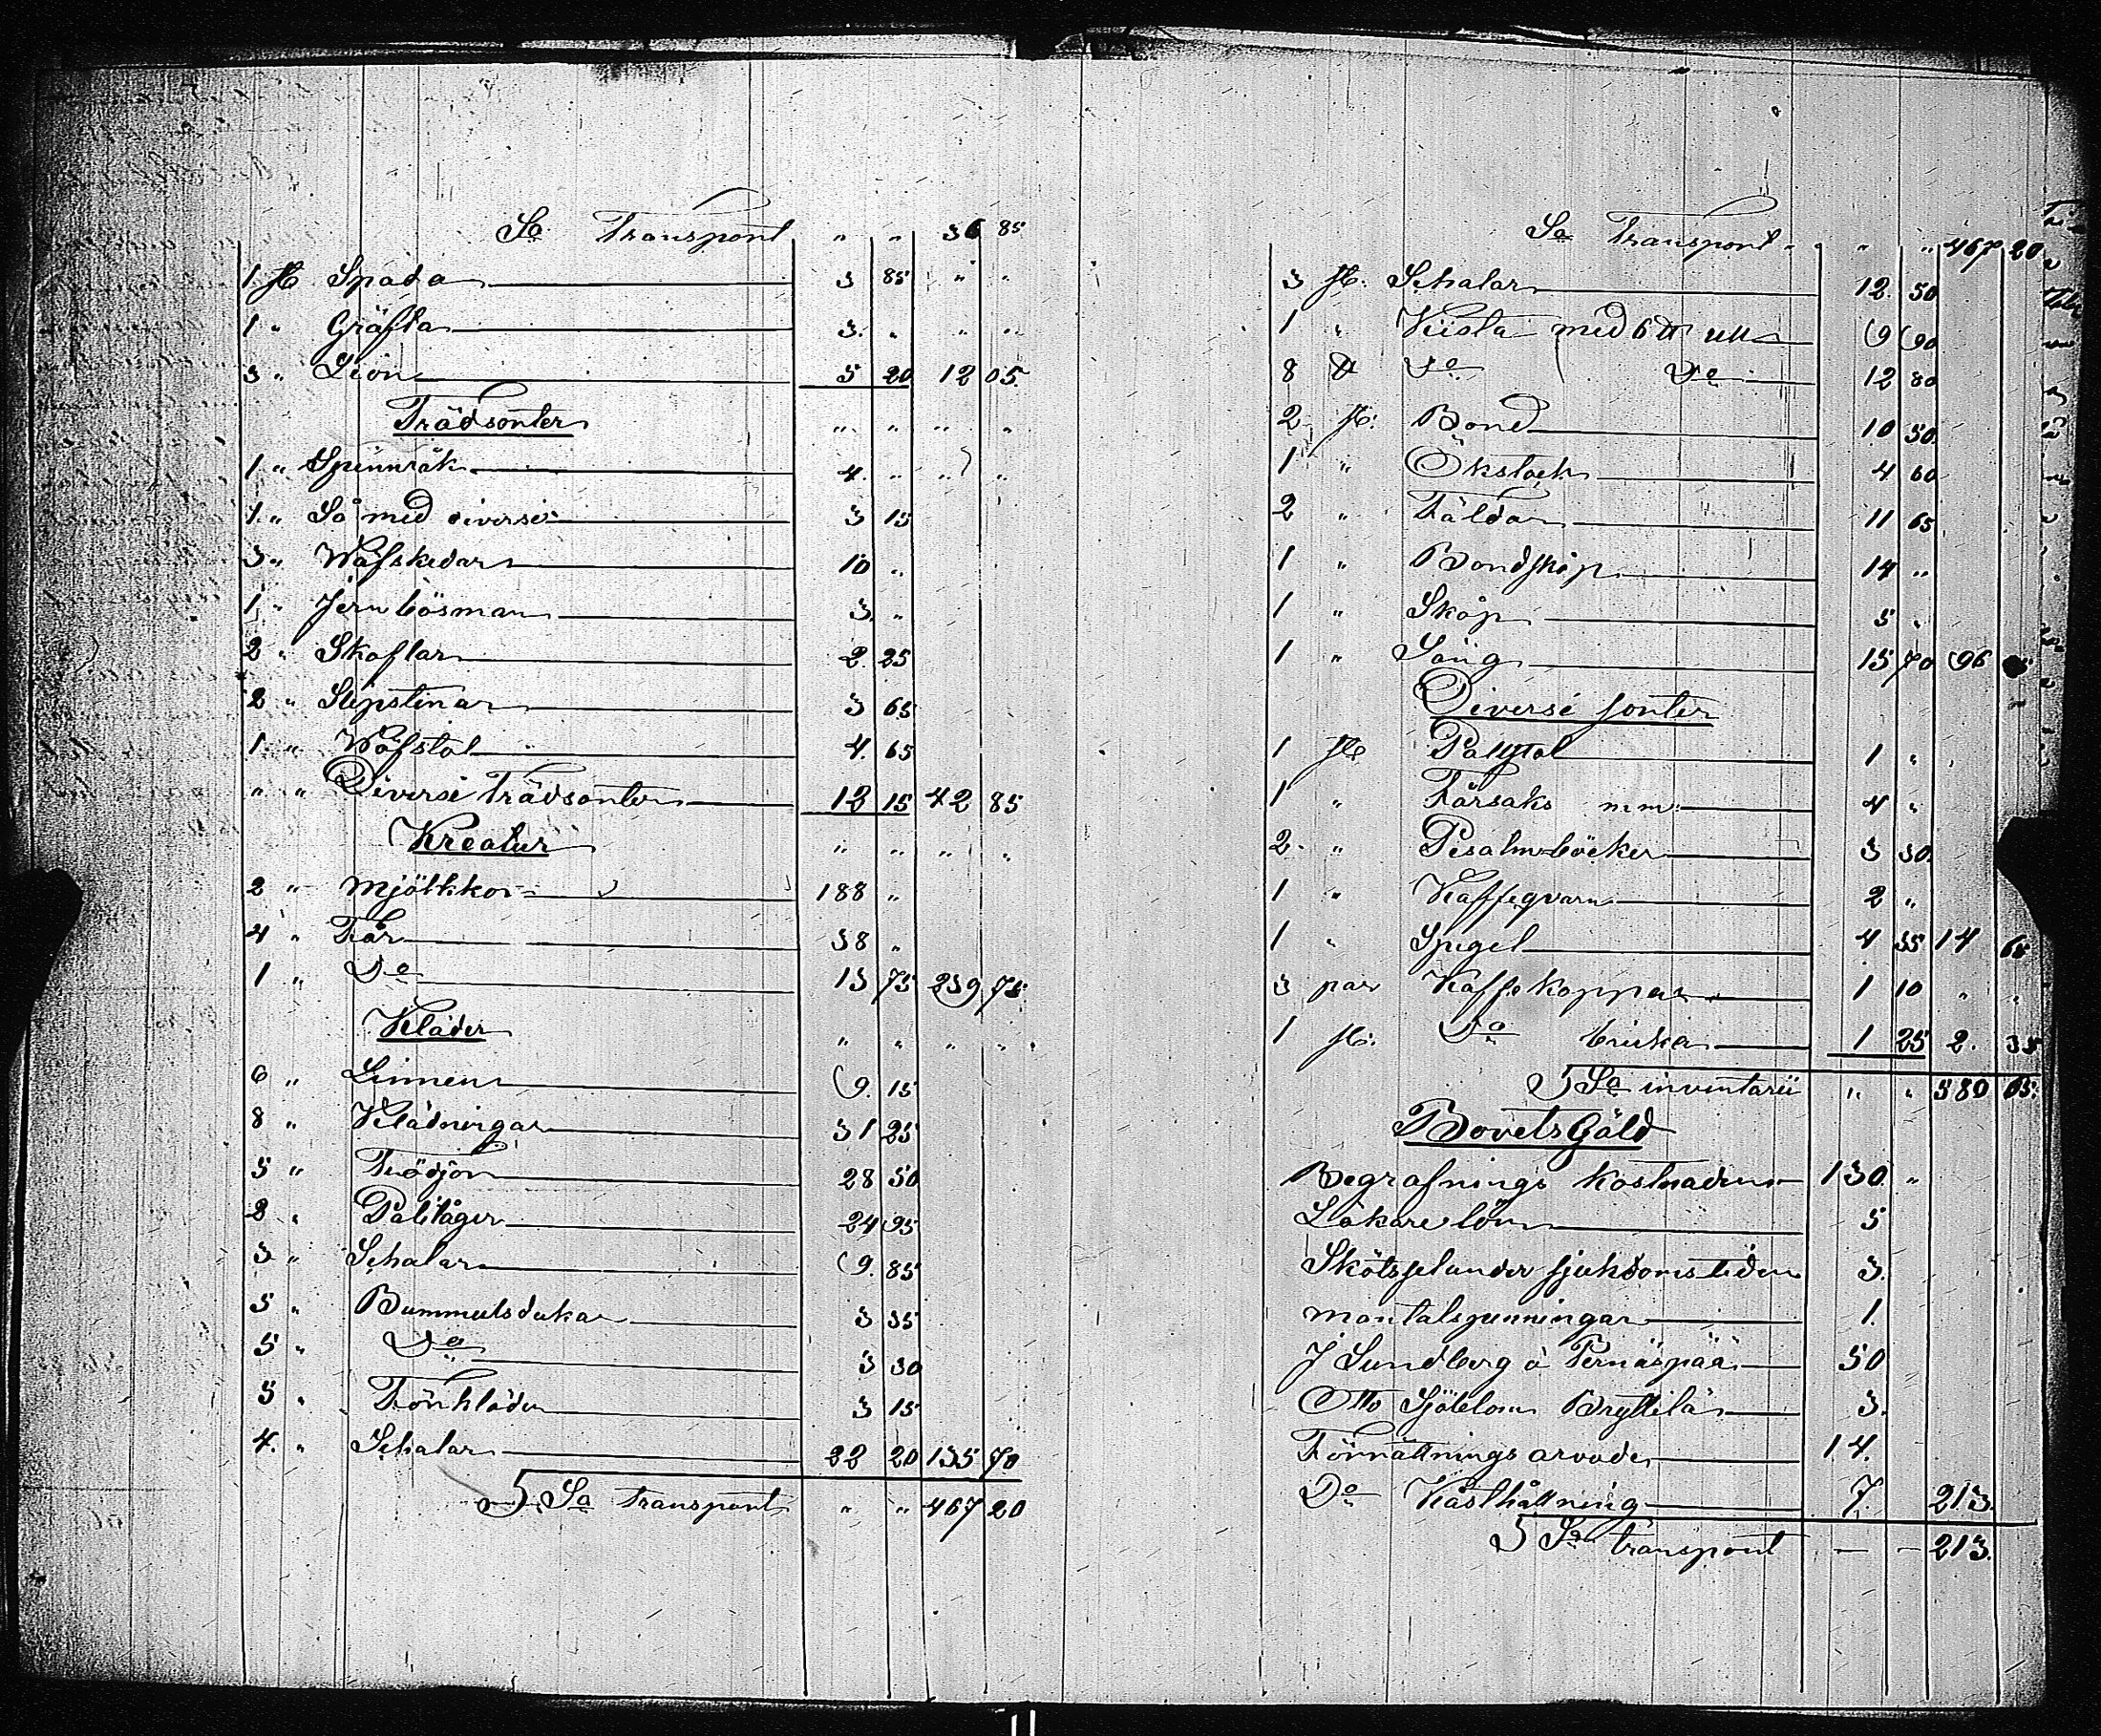 Sa Transport " " 36 85
1 st Spada 3 85 " "
1 " Gräfta 3. " " "
3 " Lion 5 20 12 05.
Trädsonter " " " "
1 " Spinnråk 4. " " "
1. " Så med diverse 3 15
3 " Wäfskedar 10 "
1 " Jern bösman 3. "
2 " Skoflar 2. 25
2 " Slipstinar 3 65
1. " Wäfstol 4. 65
" " Diversi Trädsonter 12 15 42 85
Kreatur " " " "
2 " Mjölkkor 188 "
4 " Får 38 "
1 " Do 13 75 239 75
Kläder " " " "
6 " Linnen 9. 15
8 " Klädningar 31 25
5 " Trödjor 28 50
2 " Palitåger 24 95
3 " Schalar 9. 85
5 " Bummulsdukar 3 35
5 " Do 3 30
5 " Förkläder 3 15
4. " Schalar 22 20 135 70
Sa transport " " 467 20
Sa Transport " " 467 20
3 st. Schalar 12. 50
1 " Kista med 6 ℔ ull 9 90
8 ℔ Do Do 12 80
2 st. Bord 10 50.
1 " Ökstock 4 60
2 " Fäldar 11 65
1 " Bordskåp 14 "
1 " Skåp 5 "
1 " Säng 15 70 96
Diversi sonter
1 st Pallstol 1 "
1 " Färsaks m.m. 4 "
2. " Pesalmböcker 3 30.
1 " Kaffeqvarn 2 "
1 " Spegel 4 35 14 65
3 par Kaffekoppar 1 10 " "
1 st. Do bricka 1 25 2. 35
Sa inventarii " " 580 65.
Bovets Gäld
Begrafnings kostnaden 130. "
Läkare lön 5
Skötsel under sjukdomstiden 3.
mantalspenningar 1.
J Sundberg å Pernäspää 50
Otto Sjöblom Bryttilä 3.
Förrättnings arvode 14.
Do Kåsthållning 7. 213.
Sa transport — — 213.